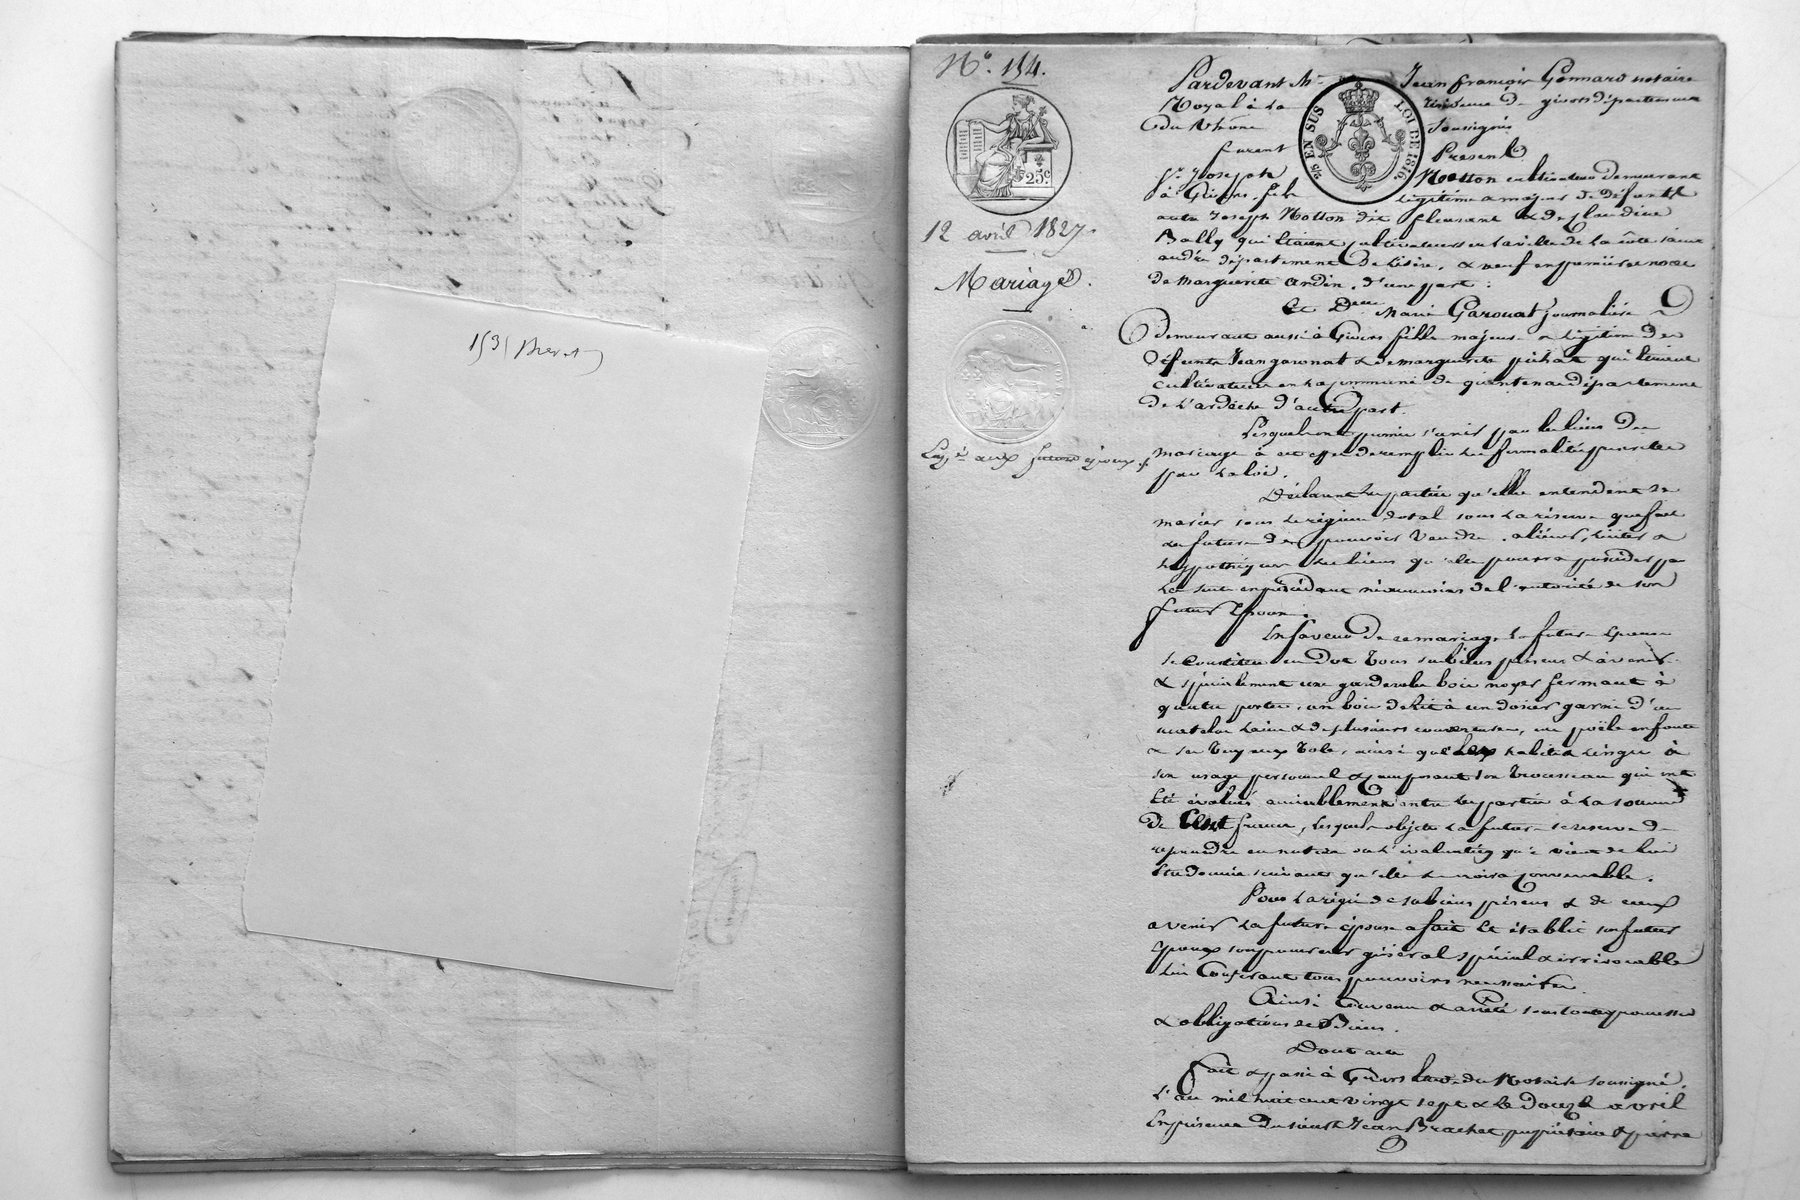 153 Brevet
N.° 154.
25.c
12 avril 1827.
Mariage.
Exp.é aux futurs époux
2/5 EN SUS LOI DE 1816.
Pardevant M.e Jean françois Gonnard notaire
Royal à la résidence de givors département
du Rhône soussigné
furent Présent
S.r Joseph Motton cultivateur demeurant
à Givors, fils légitime & majeur de défunts
autre Joseph Motton dit fleurant & de Claudine
Bally qui étaient cultivateurs en la ville de la côte saint
andré département De l'isère, & veuf en premières noces
de Marguerite andin, d'une part :
Et D.elle Marie Garonat journalière
demeurant aussi à Givors fille majeure & légitime des
défunts Jean garonat & de marguerite qui étaient
cultivateurs en la commune de quintenas département
de l'ardèche d'autre part.
Lesquels ont promis s'unir par les liens du
mariage à cet effet de remplir les formalités prescrites
par la loi.
Déclarent les parties qu'elles entendent se
marier sous le régime dotal sous la réserve que fait
la future de pouvoir vendre, aliéner, traiter &
hypothéquer les biens qu'elle pourra posséder par
la suite en procédant néanmoins de l'autorité de son
futur époux.
En faveur de ce mariage la future épouse
se constitue en Dot tous ses biens présens & à venir
& spécialement une garderobe bois noyer fermant à
quatre portes, un bois de lit à un dossier garni d'un
matelas laine & de plusieurs couvertures, un poële en fonte
& ses tuyaux tole, ainsi que les habits & linges à
son usage personnel & composant son trousseau qui ont
été évalués amiablement entre les parties à la somme
de Cent francs, lesquels objets la future se réserve de
reprendre en nature ou l'évaluation qui vient de lui
être donnée suivant qu'elle le verra convenable.
Pour la régie de ses biens présens & de ceux
avenir la future épouse a fait et établit son futur
époux son procureur général spécial & irrévocable
lui Conférant tous pouvoirs nécessaires.
Ainsi Convenu & arrêté sous toutes promesses
& obligations de Biens.
Dont acte
fait & passé à Givors étude du Notaire soussigné,
L'an mil huit cent vingt sept & le Douze avril
En présence de sieurs Jean Brachet propriétaire & pierre